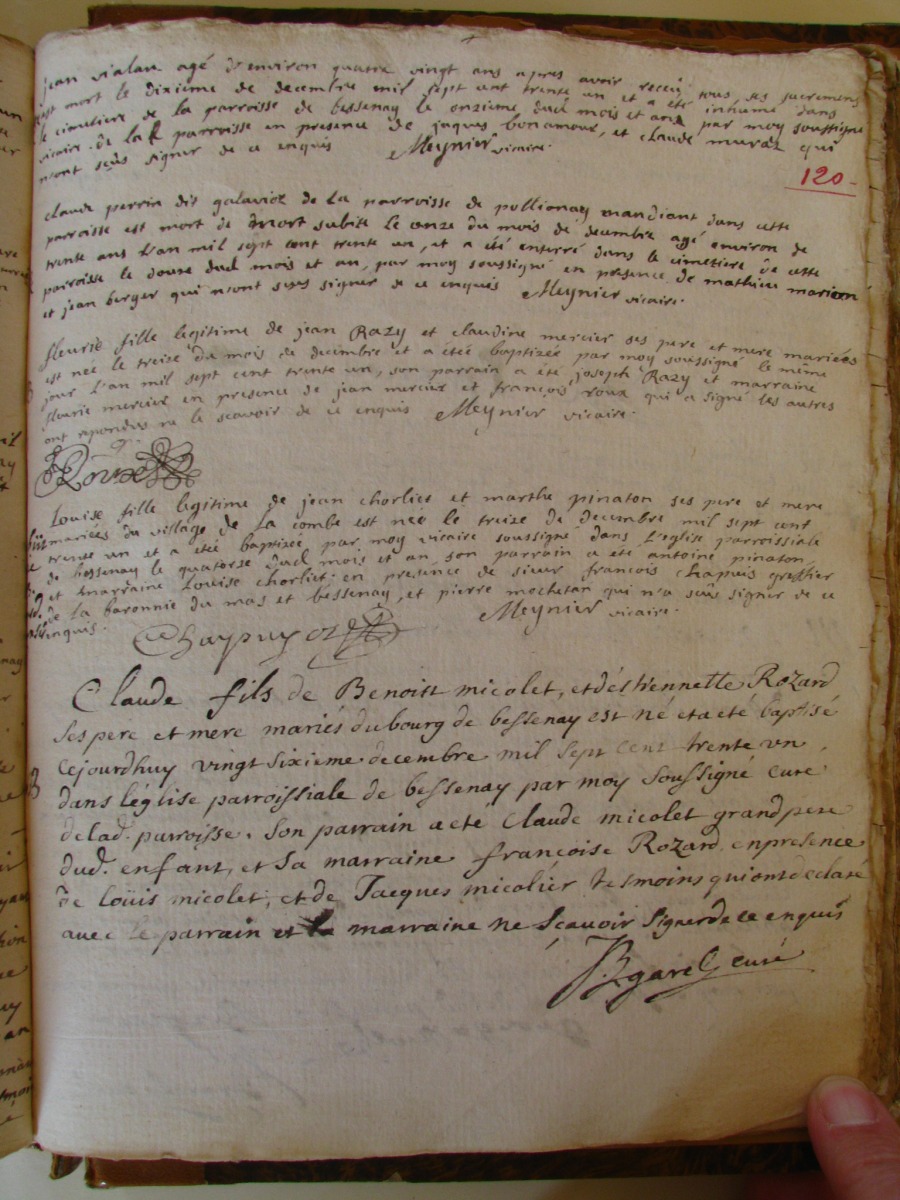 jean vialan agé d'environ quatre vingt ans apres avoir receü tous ses sacremens
est mort le dixieme de decembre mil sept cent trente un et a été inhumé dans
le cimetiere de la parroisse de bessenay le onzieme dud mois et an par moy soussigné
vicaire de lad parroisse en presence de jaques bonamour, et claude muraz qui
n'ont seus signer de ce enquis Meynier vicaire.
120-
claude perrin dit galaviez de La parroisse de pollionay mandiant dans cette
parroisse est mort de mort subite Le onze du mois de decembre agé environ de
trente ans L'an mil sept cent trente un, et a été enterré dans le cimetiere de cette
parroisse le douze dud mois et an, par moy soussigné en presence de mathieu marion
et jean berger qui n'ont seus signer de ce enquis Meynier vicaire.
fleurie fille legitime de jean Razy et claudine mercier ses pere et mere mariées
est née le treise du mois de decembre et a étée baptizée par moy soussigné le même
jour L'an mil sept cent trente un, son parrain a été joseph Razy et marraine
fleurie mercier en presence de jean mercier et françois roux qui a signé les autres
ont repondus ne le scavoir de ce enquis Meynier vicaire.
Roux
Louise fille legitime de jean chorliet et marthe pinaton ses pere et mere
mariées du village de La combe est née le treize de decembre mil sept cent
trente un et a étée baptizée par moy vicaire soussigné dans L'eglise parroissiale
de bessenay le quatorse dud mois et an, son parrain a été antoine pinaton,
et marraine Louise chorliet: en presence de sieur françois Chapuis greffier
de la baronnie du mas et bessenay, et pierre mochetan qui n'a seus signer de ce
enquis. Meynier vicaire.
Chapuy
Claude fils de Benoist micolet, et d'éstiennette Rozard
Ses pere et mere mariés du bourg de bessenay est né et a eté baptisé
cejourdhuy vingt sixieme decembre mil sept cent trente vn
dans léglise parroissiale de bessenay par moy Soussigné curé
de lad. parroisse. Son parrain a eté Claude micolet grand pere
dud. enfant, et Sa marraine françoise Rozard. en presence
de Loüis micolet, et de Jacques micolier tesmoins qui ont declaré
avec le parrain et la marraine ne Scavoir Signer de ce enquis
curé